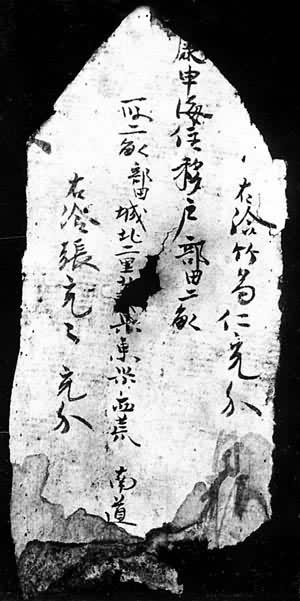 右給竹苟仁充分
康申海住移戶部田二畝
一段二畝 部田 城北二里 渠 東渠 西荒 南道
右給張充々充分